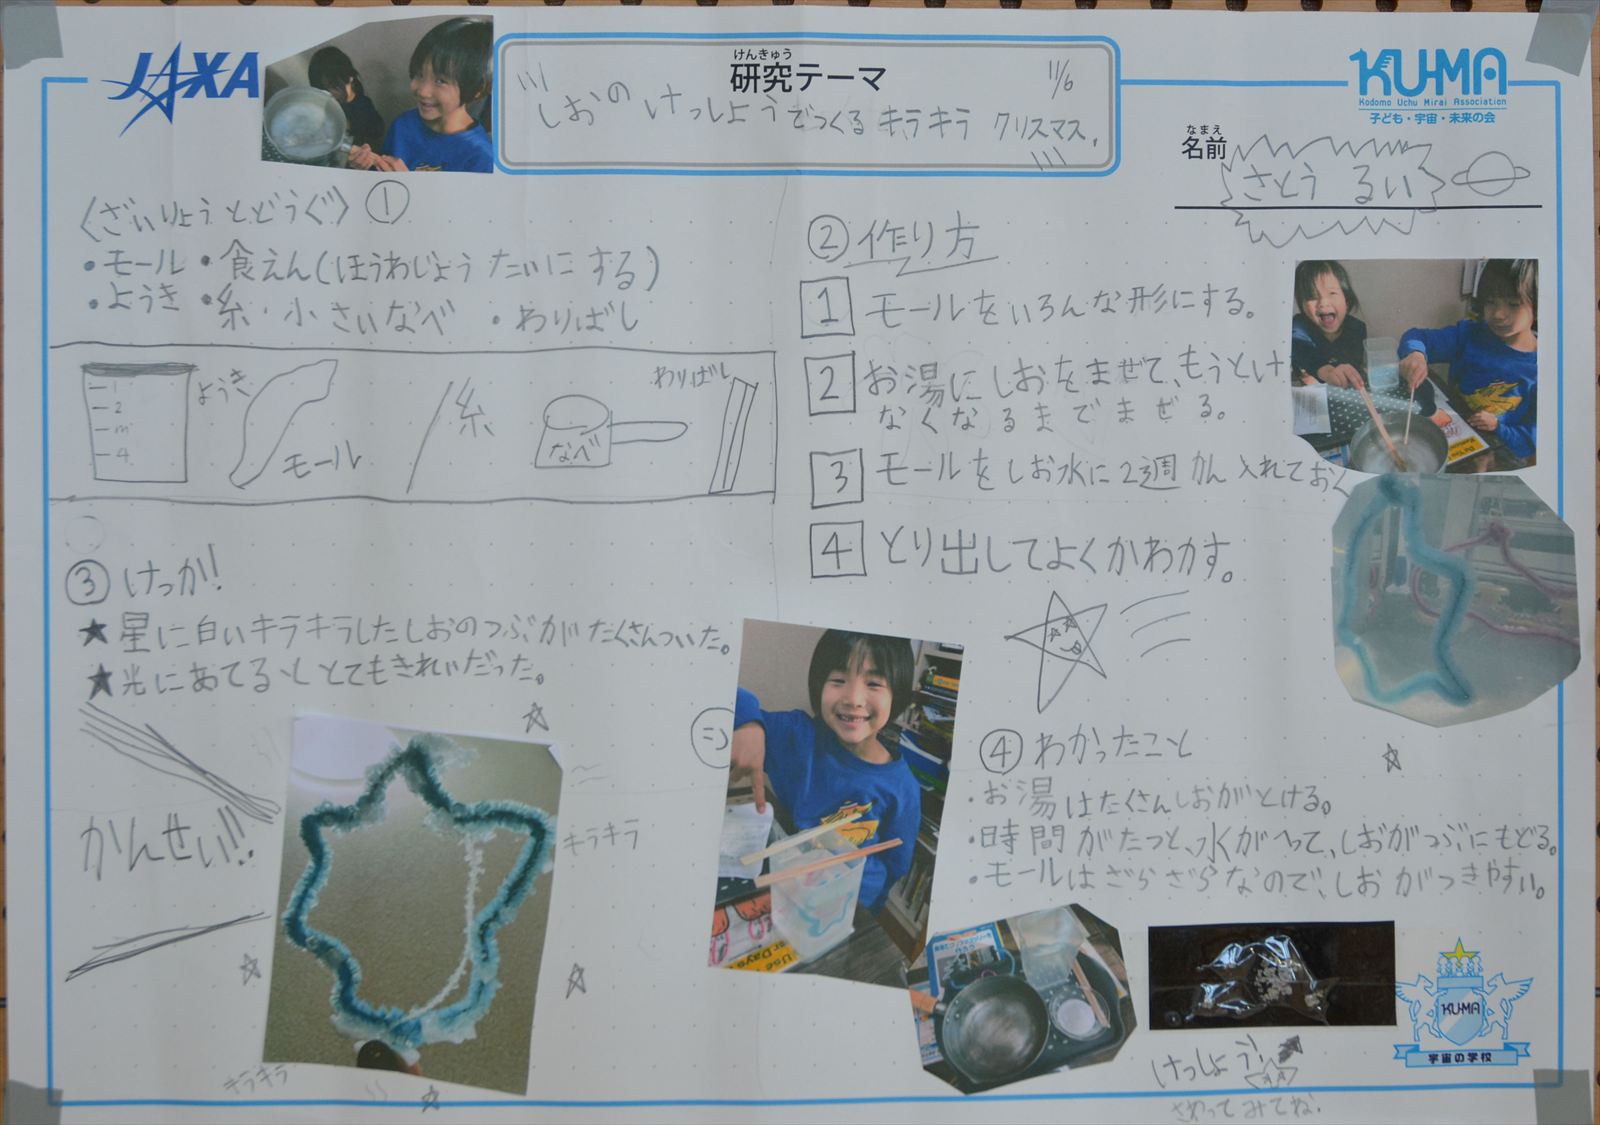 JAXA
けんきゅう
研究テーマ
11/6
しおの けっしょうでつくる キラキラ クリスマス,
KU-MA
Kodomo Uchu Mirai Association
子ども・宇宙・未来の会
なまえ
名前
さとう るい
〈ざいりょう とどうぐ〉①
・モール ・食えん(ほうわじょう たいにする)
・ようき ・糸・小さいなべ ・わりばし
1
2
m
4
ようき
モール
糸
なべ
わりばし
②作り方
1 モールをいろんな形にする。
2 お湯にしおをまぜて、もうとけ
なくなるまでまぜる。
3 モールをしお水に2週かん入れておく
4 とり出してよくかわかす。
③けっか!
★星に白いキラキラしたしおのつぶがたくさんついた。
★光にあてるととてもきれいだった。
かんせい!!
キラキラ
キラキラ
④わかったこと
・お湯はたくさんしおがとける。
・時間がたつと、水がへって、しおがつぶにもどる。
・モールはざらざらなので、しおがつきやすい。
けっしょう!
さわってみてね.
KU-MA
宇宙の学校